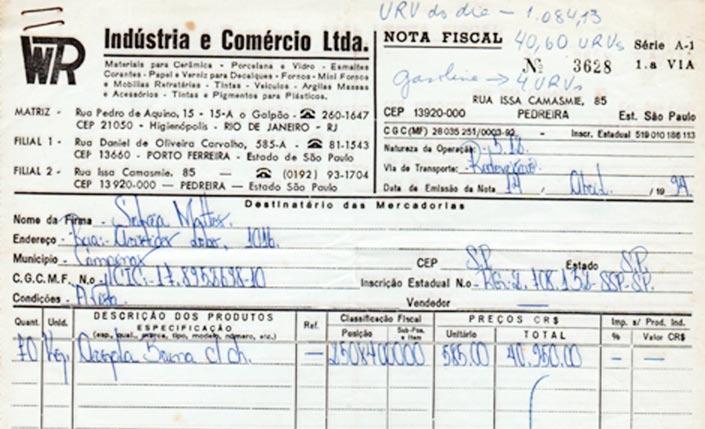 URV do dia - 1.084,13
WR Indústria e Comércio Ltda.
NOTA FISCAL 40,60 URVs Série A-1
Materiais para Cerâmica - Porcelana e Vidro - Esmaltes
Corantes - Papel e Verniz para Decalques - Fornos - Mini Fornos
e Mobilias Refratárias - Tintas - Veículos - Argilas Massas
e Acessórios - Tintas e Pigmentos para Plásticos.
Nº 3628 1.a VIA
gasolina → 4 URVs
RUA ISSA CAMASMIE, 85
CEP 13920-000 PEDREIRA Est. São Paulo
MATRIZ - Rua Pedro de Aquino, 15 - 15-A o Galpão - ☎ 260-1647
CEP 21050 - Higienópolis - RIO DE JANEIRO - RJ
FILIAL 1 - Rua Daniel de Oliveira Carvalho, 585-A - ☎ 81-1543
CEP 13660 - PORTO FERREIRA - Estado de São Paulo
FILIAL 2 - Rua Issa Camasmie. 85 — ☎ (0192) 93-1704
CEP 13920-000 — PEDREIRA — Estado São Paulo
CGC(MF) 28 035 251/0003-92 - Inscr. Estadual 519 010 186 113
Natureza da Operação: 5.12
Via de Transporte: Rodoviário
Data da Emissão da Nota 14 Abril / 19 94
Destinatário das Mercadorias
Nome da Firma - Mattos
Endereço - Rua: 1016.
Município - Campinas CEP SP. Estado SP.
C.G.C.M.F. N.o - CIC- Inscrição Estadual N.o - RG- SSP-SP.
Condições - A vista Vendedor —
Quant. Unid. DESCRIÇÃO DOS PRODUTOS
ESPECIFICAÇÃO
(esp, qual, marca, tipo, modelo, número, etc.) Ref. Classificação Fiscal
Posição Sub-Pos. e Item PREÇOS CR$
Unitário TOTAL Imp. s/ Prod. Ind.
% Valor CR$
70 Kg. c/ch. — 2508400000 585,00 40.950,00 — —